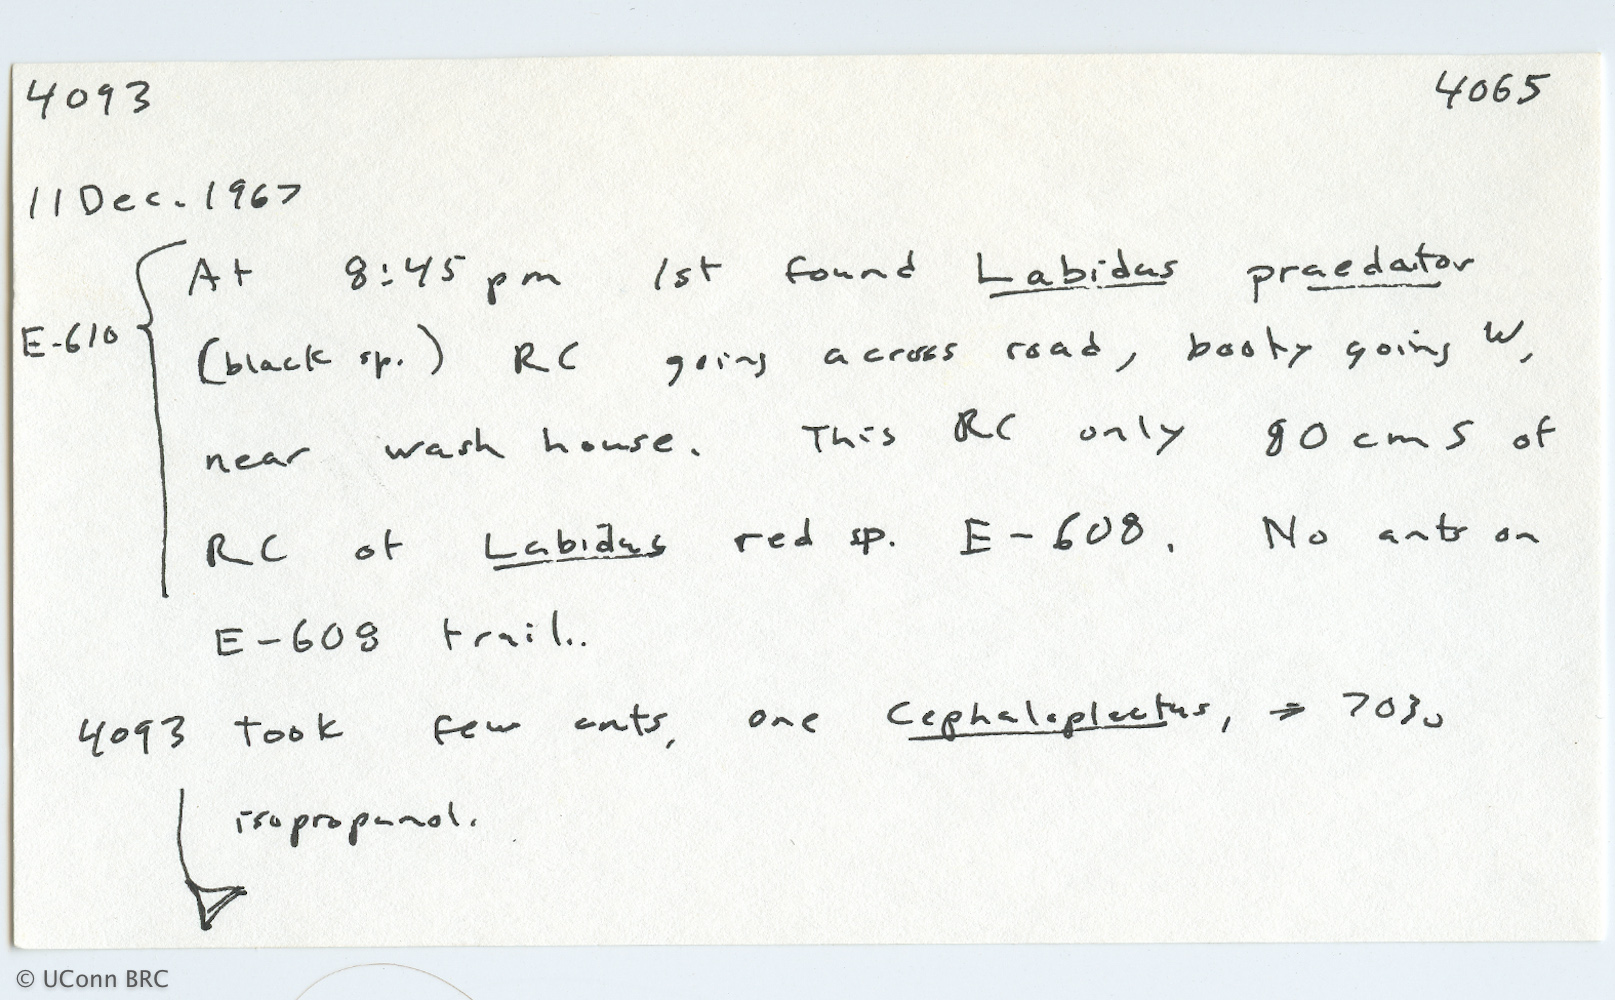 4093 4065
11 Dec. 1967
At 8:45 pm 1st found Labidus praedator
E-610 (black sp.) RC going across road, booty going W,
near wash house. This RC only 80 cms of
RC of Labidus red sp. E-608. No ants on
E-608 trail..
4093 Took few ants, one Cephaloplectus, → 70%
isopropanol.
© UConn BRC